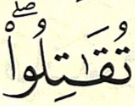 تُقَٰتِلُواْۖ